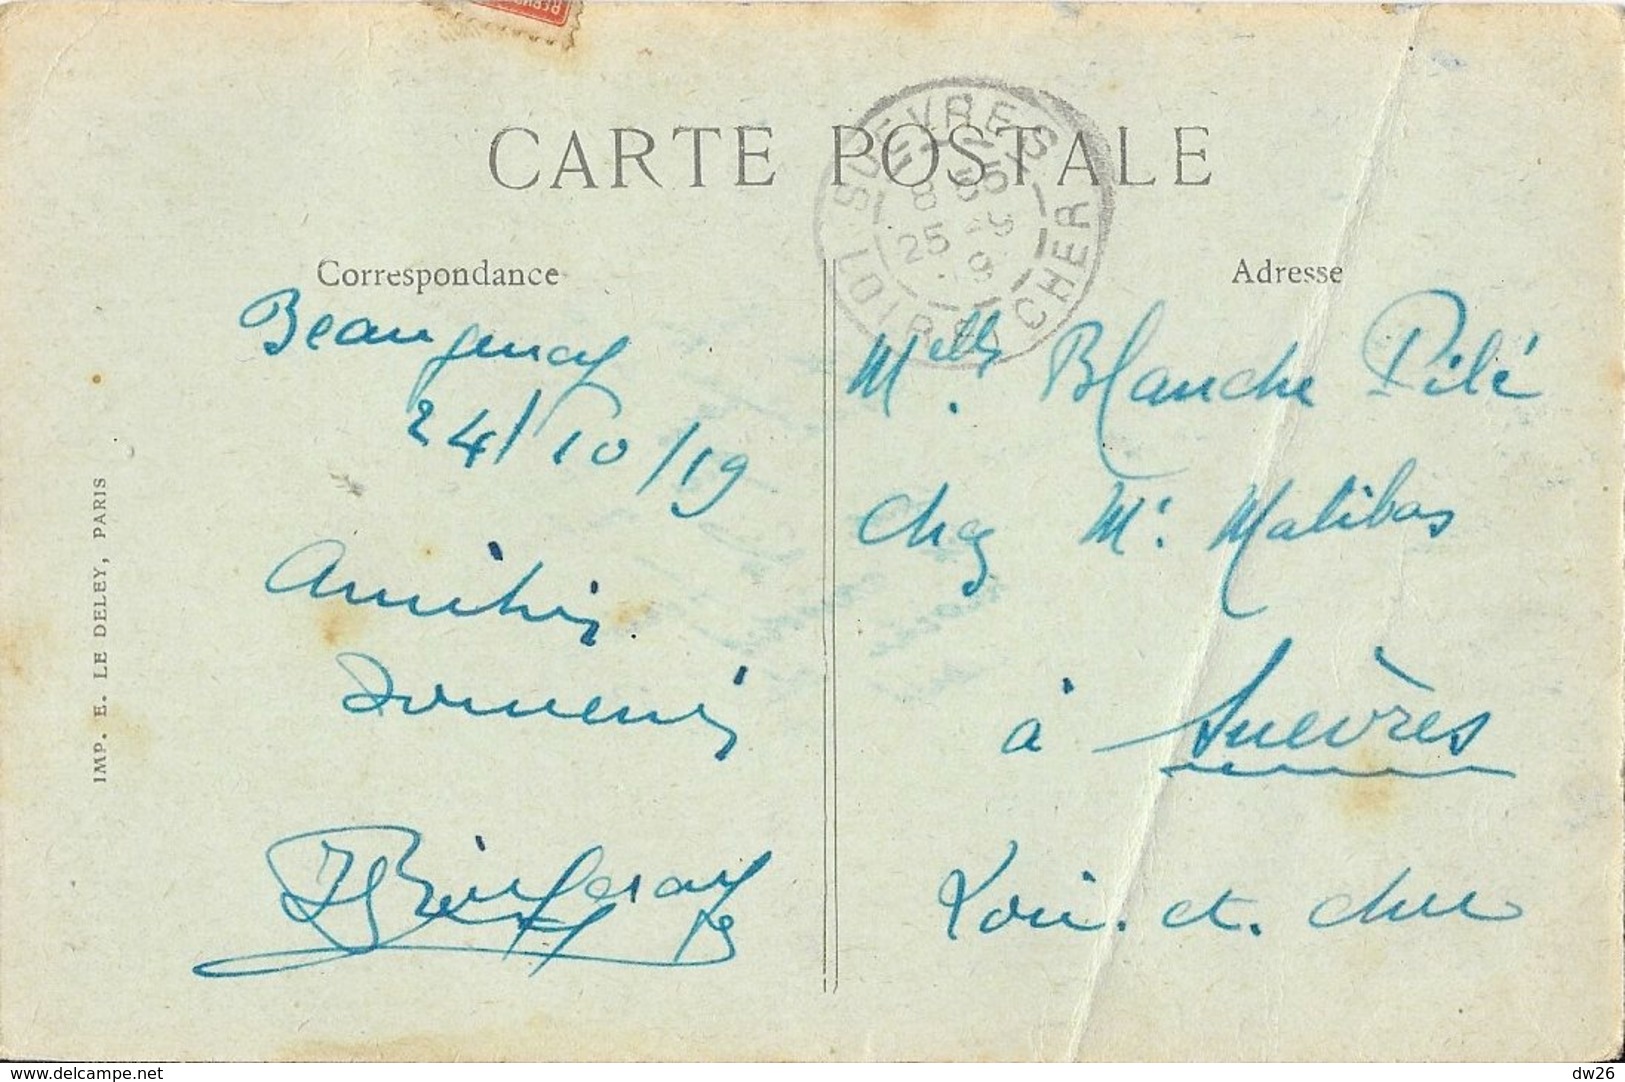 CARTE POSTALE
SUEVRES
LOIR-ET-CHER
8 55
25
Correspondance
Adresse
Beaugency
24/10/19
Amitiés
Souvenirs
Melle Blanche Pilé
Chez Mr Malibas
à Suèvres
Loir-et-cher
IMP. E. LE DELEY, PARIS
www.delcampe.net
dw26